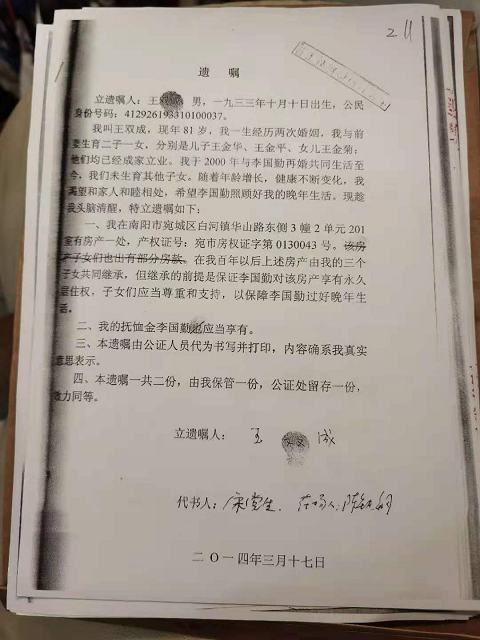 211
遗 嘱
立遗嘱人：王双成 男，一九三三年十月十日出生，公民
身份号码：412926193310100037。
我叫王双成，现年 81 岁，我一生经历两次婚姻，我与前
妻生育二子一女，分别是儿子王金华、王金平、女儿王金菊；
他们均已经成家立业。我于 2000 年与李国勤再婚共同生活至
今，我们未生育其他子女。随着年龄增长，健康不断变化，我
希望和家人和睦相处，希望李国勤照顾好我的晚年生活。现趁
我头脑清醒，特立遗嘱如下：
一、我在南阳市宛城区白河镇华山路东侧 3 幢 2 单元 201
室有房产一处，产权证号：宛市房权证字第 0130043 号。该房
产子女们也出有部分房款。在我百年以后上述房产由我的三个
子女共同继承，但继承的前提是保证李国勤对该房产享有永久
居住权，子女们应当尊重和支持，以保障李国勤过好晚年生
活。
二、我的抚恤金李国勤应当享有。
三、本遗嘱由公证人员代为书写并打印，内容确系我真实
意思表示。
四、本遗嘱一共二份，由我保管一份，公证处留存一份，
效力同等。
立遗嘱人： 王 双 成
代书人：
二〇一四年三月十七日